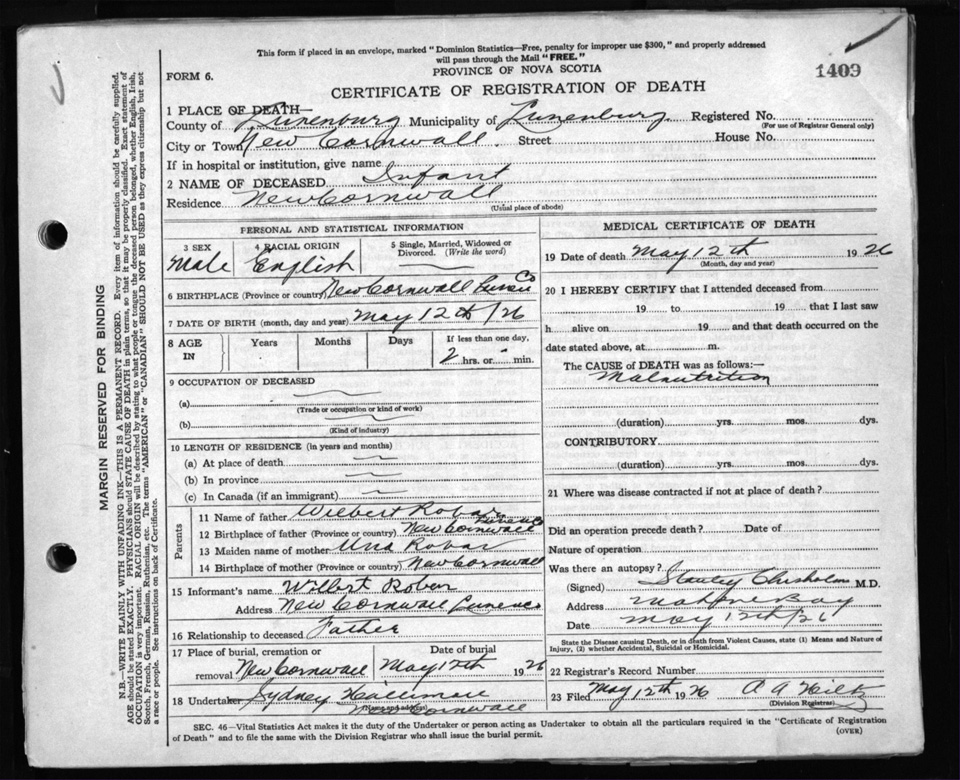 This form if placed in an envelope, marked "Dominion Statistics—Free, penalty for improper use $300," and properly addressed
will pass through the Mail "FREE."
PROVINCE OF NOVA SCOTIA
FORM 6.
1409
CERTIFICATE OF REGISTRATION OF DEATH
1 PLACE OF DEATH—
County of Lunenburg Municipality of Lunenburg Registered No.
(For use of Registrar General only)
City or Town New Cornwall Street House No.
If in hospital or institution, give name
2 NAME OF DECEASED Infant
Residence New Cornwall
(Usual place of abode)
PERSONAL AND STATISTICAL INFORMATION
3 SEX 4 RACIAL ORIGIN 5 Single, Married, Widowed or Divorced. (Write the word)
Male English
6 BIRTHPLACE (Province or country) New Cornwall Lunen Co
7 DATE OF BIRTH (month, day and year) May 12th /26
8 AGE IN Years Months Days If less than one day,
2 hrs. or min.
9 OCCUPATION OF DECEASED
(a)
(Trade or occupation or kind of work)
(b)
(Kind of industry)
10 LENGTH OF RESIDENCE (in years and months)
(a) At place of death
(b) In province
(c) In Canada (if an immigrant)
Parents
11 Name of father Wilbert Robar
12 Birthplace of father (Province or country) New Cornwall Lunen Co
13 Maiden name of mother Una Robar
14 Birthplace of mother (Province or country) New Cornwall
15 Informant's name Wilbert Robar
Address New Cornwall Lunen Co
16 Relationship to deceased Father
17 Place of burial, cremation or removal Date of burial
New Cornwall May 12th 1926
18 Undertaker Sydney
New Cornwall
MEDICAL CERTIFICATE OF DEATH
19 Date of death May 12th 1926
(Month, day and year)
20 I HEREBY CERTIFY that I attended deceased from
19 to 19 that I last saw
h alive on 19 and that death occurred on the
date stated above, at m.
The CAUSE OF DEATH was as follows:—
Malnutrition
(duration) yrs. mos. dys.
CONTRIBUTORY
(duration) yrs. mos. dys.
21 Where was disease contracted if not at place of death?
Did an operation precede death? Date of
Nature of operation
Was there an autopsy?
(Signed) Stanley Chisholm M.D.
Address Mahone Bay
Date May 12th /26
State the Disease causing Death, or in death from Violent Causes, state (1) Means and Nature of
Injury, (2) whether Accidental, Suicidal or Homicidal.
22 Registrar's Record Number
23 Filed May 12th 1926 A A Hiltz
(Division Registrar)
SEC. 46—Vital Statistics Act makes it the duty of the Undertaker or person acting as Undertaker to obtain all the particulars required in the "Certificate of Registration
of Death" and to file the same with the Division Registrar who shall issue the burial permit.
(OVER)
MARGIN RESERVED FOR BINDING
N.B.—WRITE PLAINLY WITH UNFADING INK—THIS IS A PERMANENT RECORD. Every item of information should be carefully supplied.
AGE should be stated EXACTLY. PHYSICIANS should STATE CAUSE OF DEATH in plain terms, so that it may be properly classified. Exact statement of
OCCUPATION is very important. RACIAL ORIGIN will be described by stating to what people or tongue the deceased person belonged, whether English, Irish,
Scotch, French, German, Russian, Ruthenian, etc. The terms "AMERICAN" or "CANADIAN" SHOULD NOT BE USED as they express citizenship but not
a race or people. See instructions on back of Certificate.